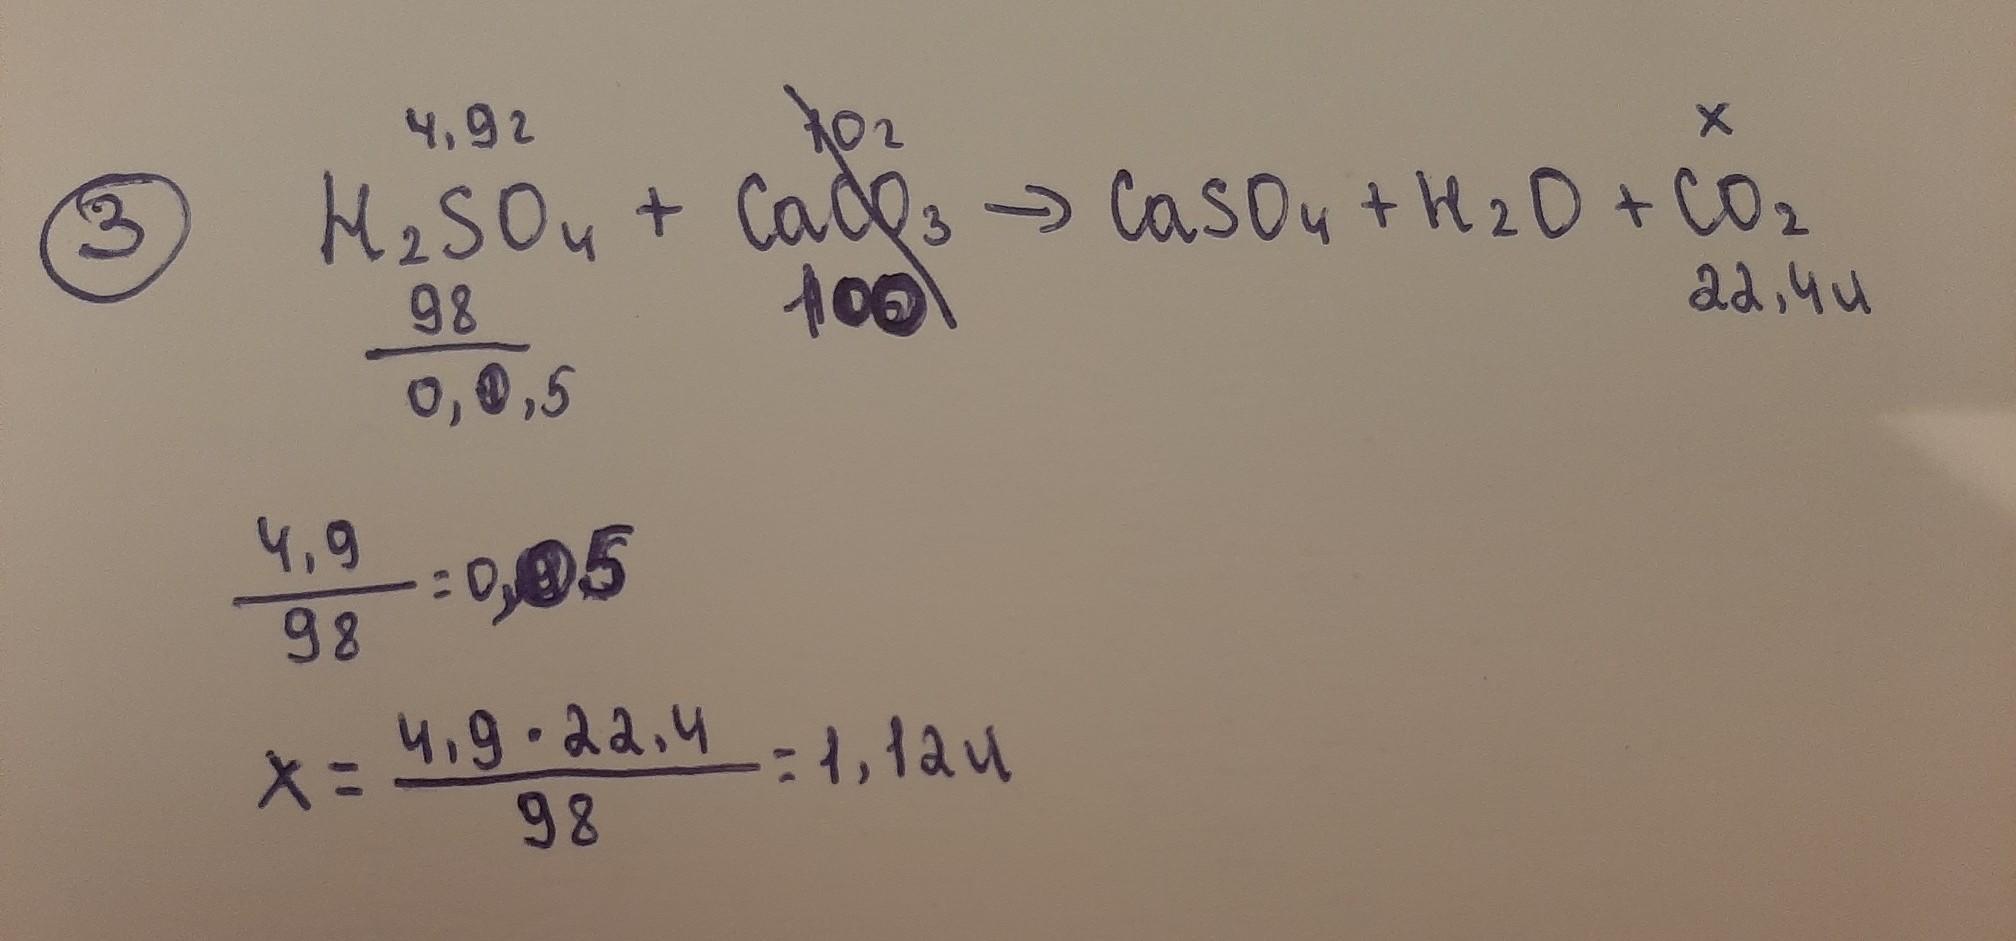 4,9г 10г x
③ H₂SO₄ + CaCO₃ → CaSO₄ + H₂O + CO₂
98 100 22,4л
0,0,5
4,9
98 = 0,05
x = 4,9 · 22,4
98 = 1,12л